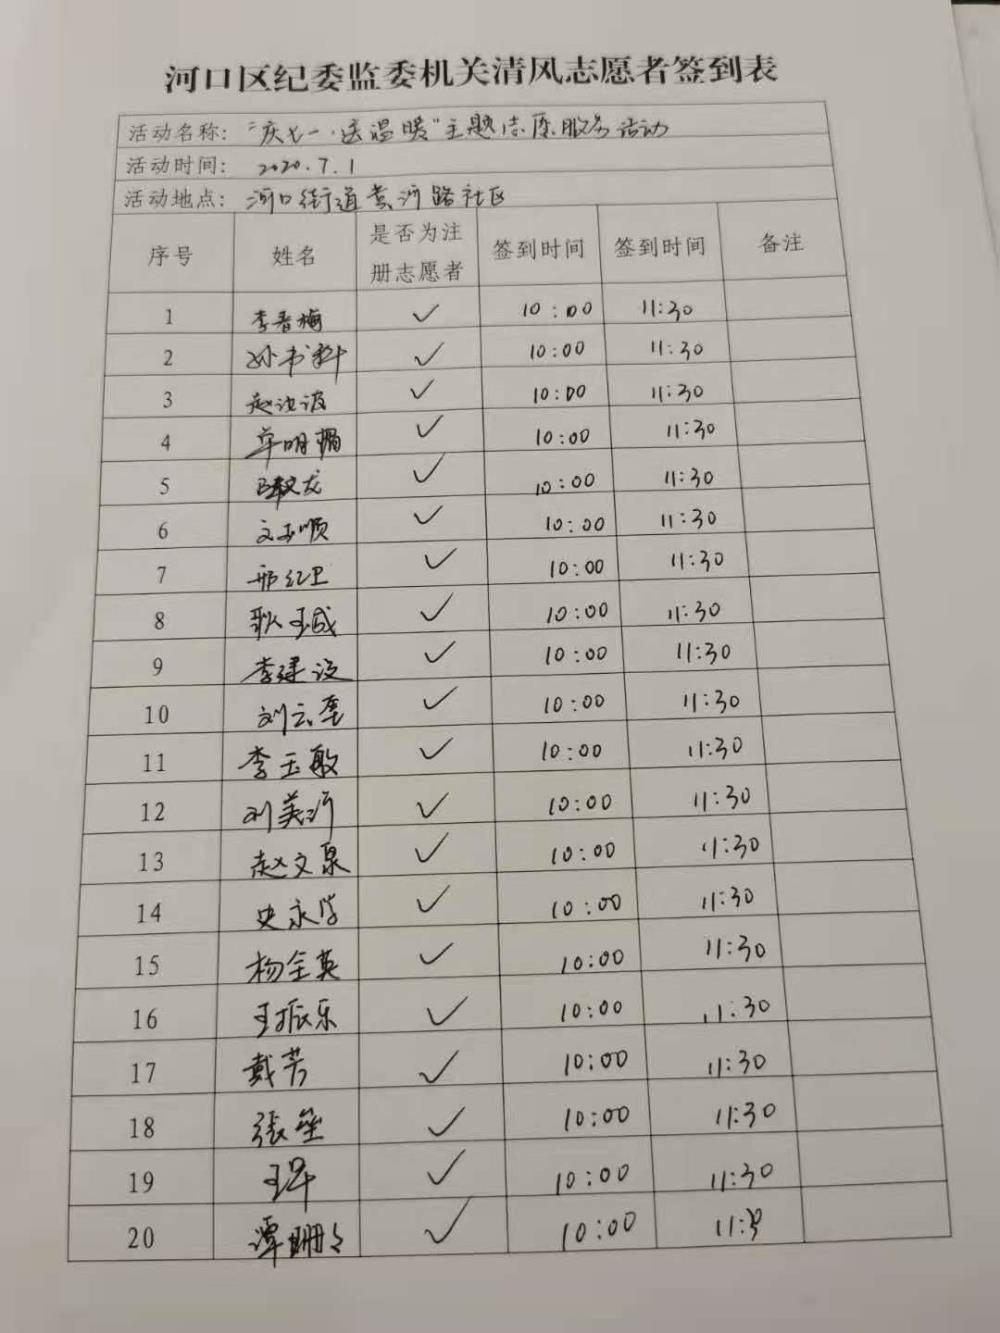 河口区纪委监委机关清风志愿者签到表
活动名称: "庆七一·送温暖"主题志愿服务活动
活动时间: 2020.7.1
活动地点: 河口街道黄河路社区
序号 姓名 是否为注册志愿者 签到时间 签到时间 备注
1 李春梅 ✓ 10:00 11:30
2 孙书科 ✓ 10:00 11:30
3 赵 ✓ 10:00 11:30
4 明 ✓ 10:00 11:30
5 龙 ✓ 10:00 11:30
6 文玉顺 ✓ 10:00 11:30
7 邢红卫 ✓ 10:00 11:30
8 耿玉成 ✓ 10:00 11:30
9 李建设 ✓ 10:00 11:30
10 刘云 ✓ 10:00 11:30
11 李玉敏 ✓ 10:00 11:30
12 刘美河 ✓ 10:00 11:30
13 赵文泉 ✓ 10:00 11:30
14 史永 ✓ 10:00 11:30
15 杨金英 ✓ 10:00 11:30
16 王振乐 ✓ 10:00 11:30
17 戴芳 ✓ 10:00 11:30
18 張 ✓ 10:00 11:30
19 王 ✓ 10:00 11:30
20 谭珊珊 ✓ 10:00 11:30